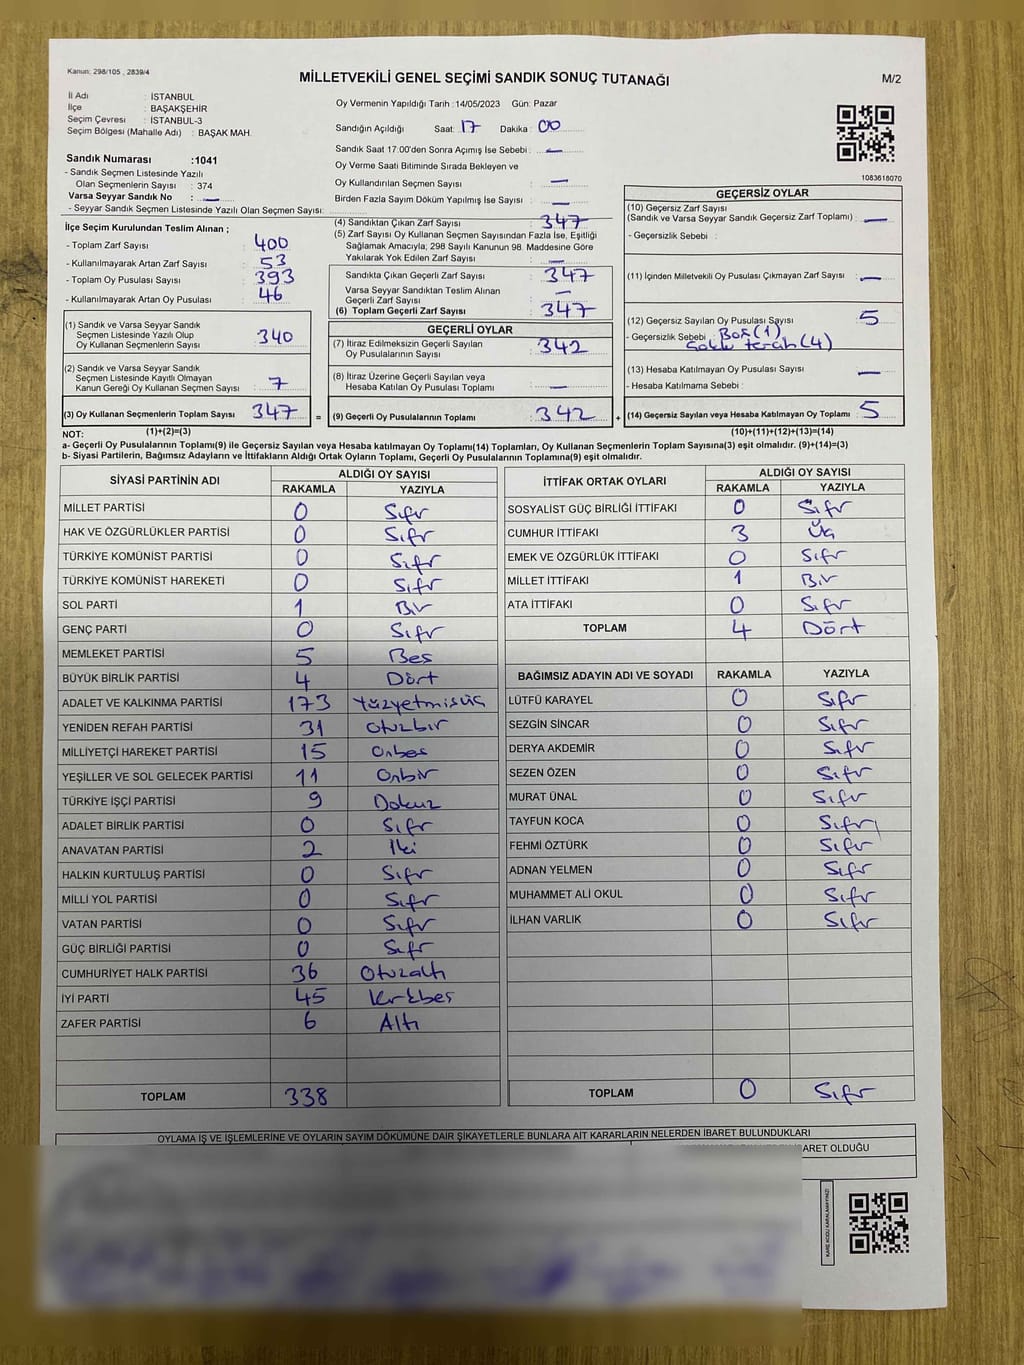 Kanun: 298/105 , 2839/4
MİLLETVEKİLİ GENEL SEÇİMİ SANDIK SONUÇ TUTANAĞI
M/2
İl Adı : İSTANBUL
İlçe : BAŞAKŞEHİR
Seçim Çevresi : İSTANBUL-3
Seçim Bölgesi (Mahalle Adı) : BAŞAK MAH.
Oy Vermenin Yapıldığı Tarih :14/05/2023 Gün: Pazar
Sandığın Açıldığı Saat: 17 Dakika : 00
Sandık Saat 17.00'den Sonra Açımış İse Sebebi : —
Oy Verme Saati Bitiminde Sırada Bekleyen ve
Oy Kullandırılan Seçmen Sayısı : —
Birden Fazla Sayım Döküm Yapılmış İse Sayısı : —
1083618070
Sandık Numarası :1041
- Sandık Seçmen Listesinde Yazılı
Olan Seçmenlerin Sayısı : 374
Varsa Seyyar Sandık No : —
- Seyyar Sandık Seçmen Listesinde Yazılı Olan Seçmen Sayısı:
İlçe Seçim Kurulundan Teslim Alınan ;
- Toplam Zarf Sayısı : 400
- Kullanılmayarak Artan Zarf Sayısı : 53
- Toplam Oy Pusulası Sayısı : 393
- Kullanılmayarak Artan Oy Pusulası : 46
(1) Sandık ve Varsa Seyyar Sandık
Seçmen Listesinde Yazılı Olup
Oy Kullanan Seçmenlerin Sayısı : 340
(2) Sandık ve Varsa Seyyar Sandık
Seçmen Listesinde Kayıtlı Olmayan
Kanun Gereği Oy Kullanan Seçmen Sayısı : 7
(3) Oy Kullanan Seçmenlerin Toplam Sayısı : 347 =
(1)+(2)=(3)
(4) Sandıktan Çıkan Zarf Sayısı : 347
(5) Zarf Sayısı Oy Kullanan Seçmen Sayısından Fazla İse, Eşitliği
Sağlamak Amacıyla; 298 Sayılı Kanunun 98. Maddesine Göre
Yakılarak Yok Edilen Zarf Sayısı : —
Sandıkta Çıkan Geçerli Zarf Sayısı : 347
Varsa Seyyar Sandıktan Teslim Alınan
Geçerli Zarf Sayısı : —
(6) Toplam Geçerli Zarf Sayısı : 347
GEÇERLİ OYLAR
(7) İtiraz Edilmeksizin Geçerli Sayılan
Oy Pusulalarının Sayısı : 342
(8) İtiraz Üzerine Geçerli Sayılan veya
Hesaba Katılan Oy Pusulası Toplamı : —
(9) Geçerli Oy Pusulalarının Toplamı : 342 +
GEÇERSİZ OYLAR
(10) Geçersiz Zarf Sayısı
(Sandık ve Varsa Seyyar Sandık Geçersiz Zarf Toplamı) : —
- Geçersizlik Sebebi :
(11) İçinden Milletvekili Oy Pusulası Çıkmayan Zarf Sayısı : —
(12) Geçersiz Sayılan Oy Pusulası Sayısı : 5
- Geçersizlik Sebebi : Boş (1)
(4)
(13) Hesaba Katılmayan Oy Pusulası Sayısı : —
- Hesaba Katılmama Sebebi :
(14) Geçersiz Sayılan veya Hesaba Katılmayan Oy Toplamı : 5
(10)+(11)+(12)+(13)=(14)
NOT:
a- Geçerli Oy Pusulalarının Toplamı(9) ile Geçersiz Sayılan veya Hesaba katılmayan Oy Toplamı(14) Toplamları, Oy Kullanan Seçmenlerin Toplam Sayısına(3) eşit olmalıdır. (9)+(14)=(3)
b- Siyasi Partilerin, Bağımsız Adayların ve İttifakların Aldığı Ortak Oyların Toplamı, Geçerli Oy Pusulalarının Toplamına(9) eşit olmalıdır.
SİYASİ PARTİNİN ADI
ALDIĞI OY SAYISI
RAKAMLA YAZIYLA
MİLLET PARTİSİ 0 Sıfır
HAK VE ÖZGÜRLÜKLER PARTİSİ 0 Sıfır
TÜRKİYE KOMÜNİST PARTİSİ 0 Sıfır
TÜRKİYE KOMÜNİST HAREKETİ 0 Sıfır
SOL PARTİ 1 Bir
GENÇ PARTİ 0 Sıfır
MEMLEKET PARTİSİ 5 Beş
BÜYÜK BİRLİK PARTİSİ 4 Dört
ADALET VE KALKINMA PARTİSİ 173 Yüzyetmişüç
YENİDEN REFAH PARTİSİ 31 Otuzbir
MİLLİYETÇİ HAREKET PARTİSİ 15 Onbeş
YEŞİLLER VE SOL GELECEK PARTİSİ 11 Onbir
TÜRKİYE İŞÇİ PARTİSİ 9 Dokuz
ADALET BİRLİK PARTİSİ 0 Sıfır
ANAVATAN PARTİSİ 2 İki
HALKIN KURTULUŞ PARTİSİ 0 Sıfır
MİLLİ YOL PARTİSİ 0 Sıfır
VATAN PARTİSİ 0 Sıfır
GÜÇ BİRLİĞİ PARTİSİ 0 Sıfır
CUMHURİYET HALK PARTİSİ 36 Otuzaltı
İYİ PARTİ 45 Kırkbeş
ZAFER PARTİSİ 6 Altı
TOPLAM 338
İTTİFAK ORTAK OYLARI
ALDIĞI OY SAYISI
RAKAMLA YAZIYLA
SOSYALİST GÜÇ BİRLİĞİ İTTİFAKI 0 Sıfır
CUMHUR İTTİFAKI 3 Üç
EMEK VE ÖZGÜRLÜK İTTİFAKI 0 Sıfır
MİLLET İTTİFAKI 1 Bir
ATA İTTİFAKI 0 Sıfır
TOPLAM 4 Dört
BAĞIMSIZ ADAYIN ADI VE SOYADI RAKAMLA YAZIYLA
LÜTFÜ KARAYEL 0 Sıfır
SEZGİN SİNCAR 0 Sıfır
DERYA AKDEMİR 0 Sıfır
SEZEN ÖZEN 0 Sıfır
MURAT ÜNAL 0 Sıfır
TAYFUN KOCA 0 Sıfır
FEHMİ ÖZTÜRK 0 Sıfır
ADNAN YELMEN 0 Sıfır
MUHAMMET ALİ OKUL 0 Sıfır
İLHAN VARLIK 0 Sıfır
TOPLAM 0 Sıfır
OYLAMA İŞ VE İŞLEMLERİNE VE OYLARIN SAYIM DÖKÜMÜNE DAİR ŞİKAYETLERLE BUNLARA AİT KARARLARIN NELERDEN İBARET BULUNDUKLARI
OLDUĞU
KARE KODU KARALAMAYINIZ!